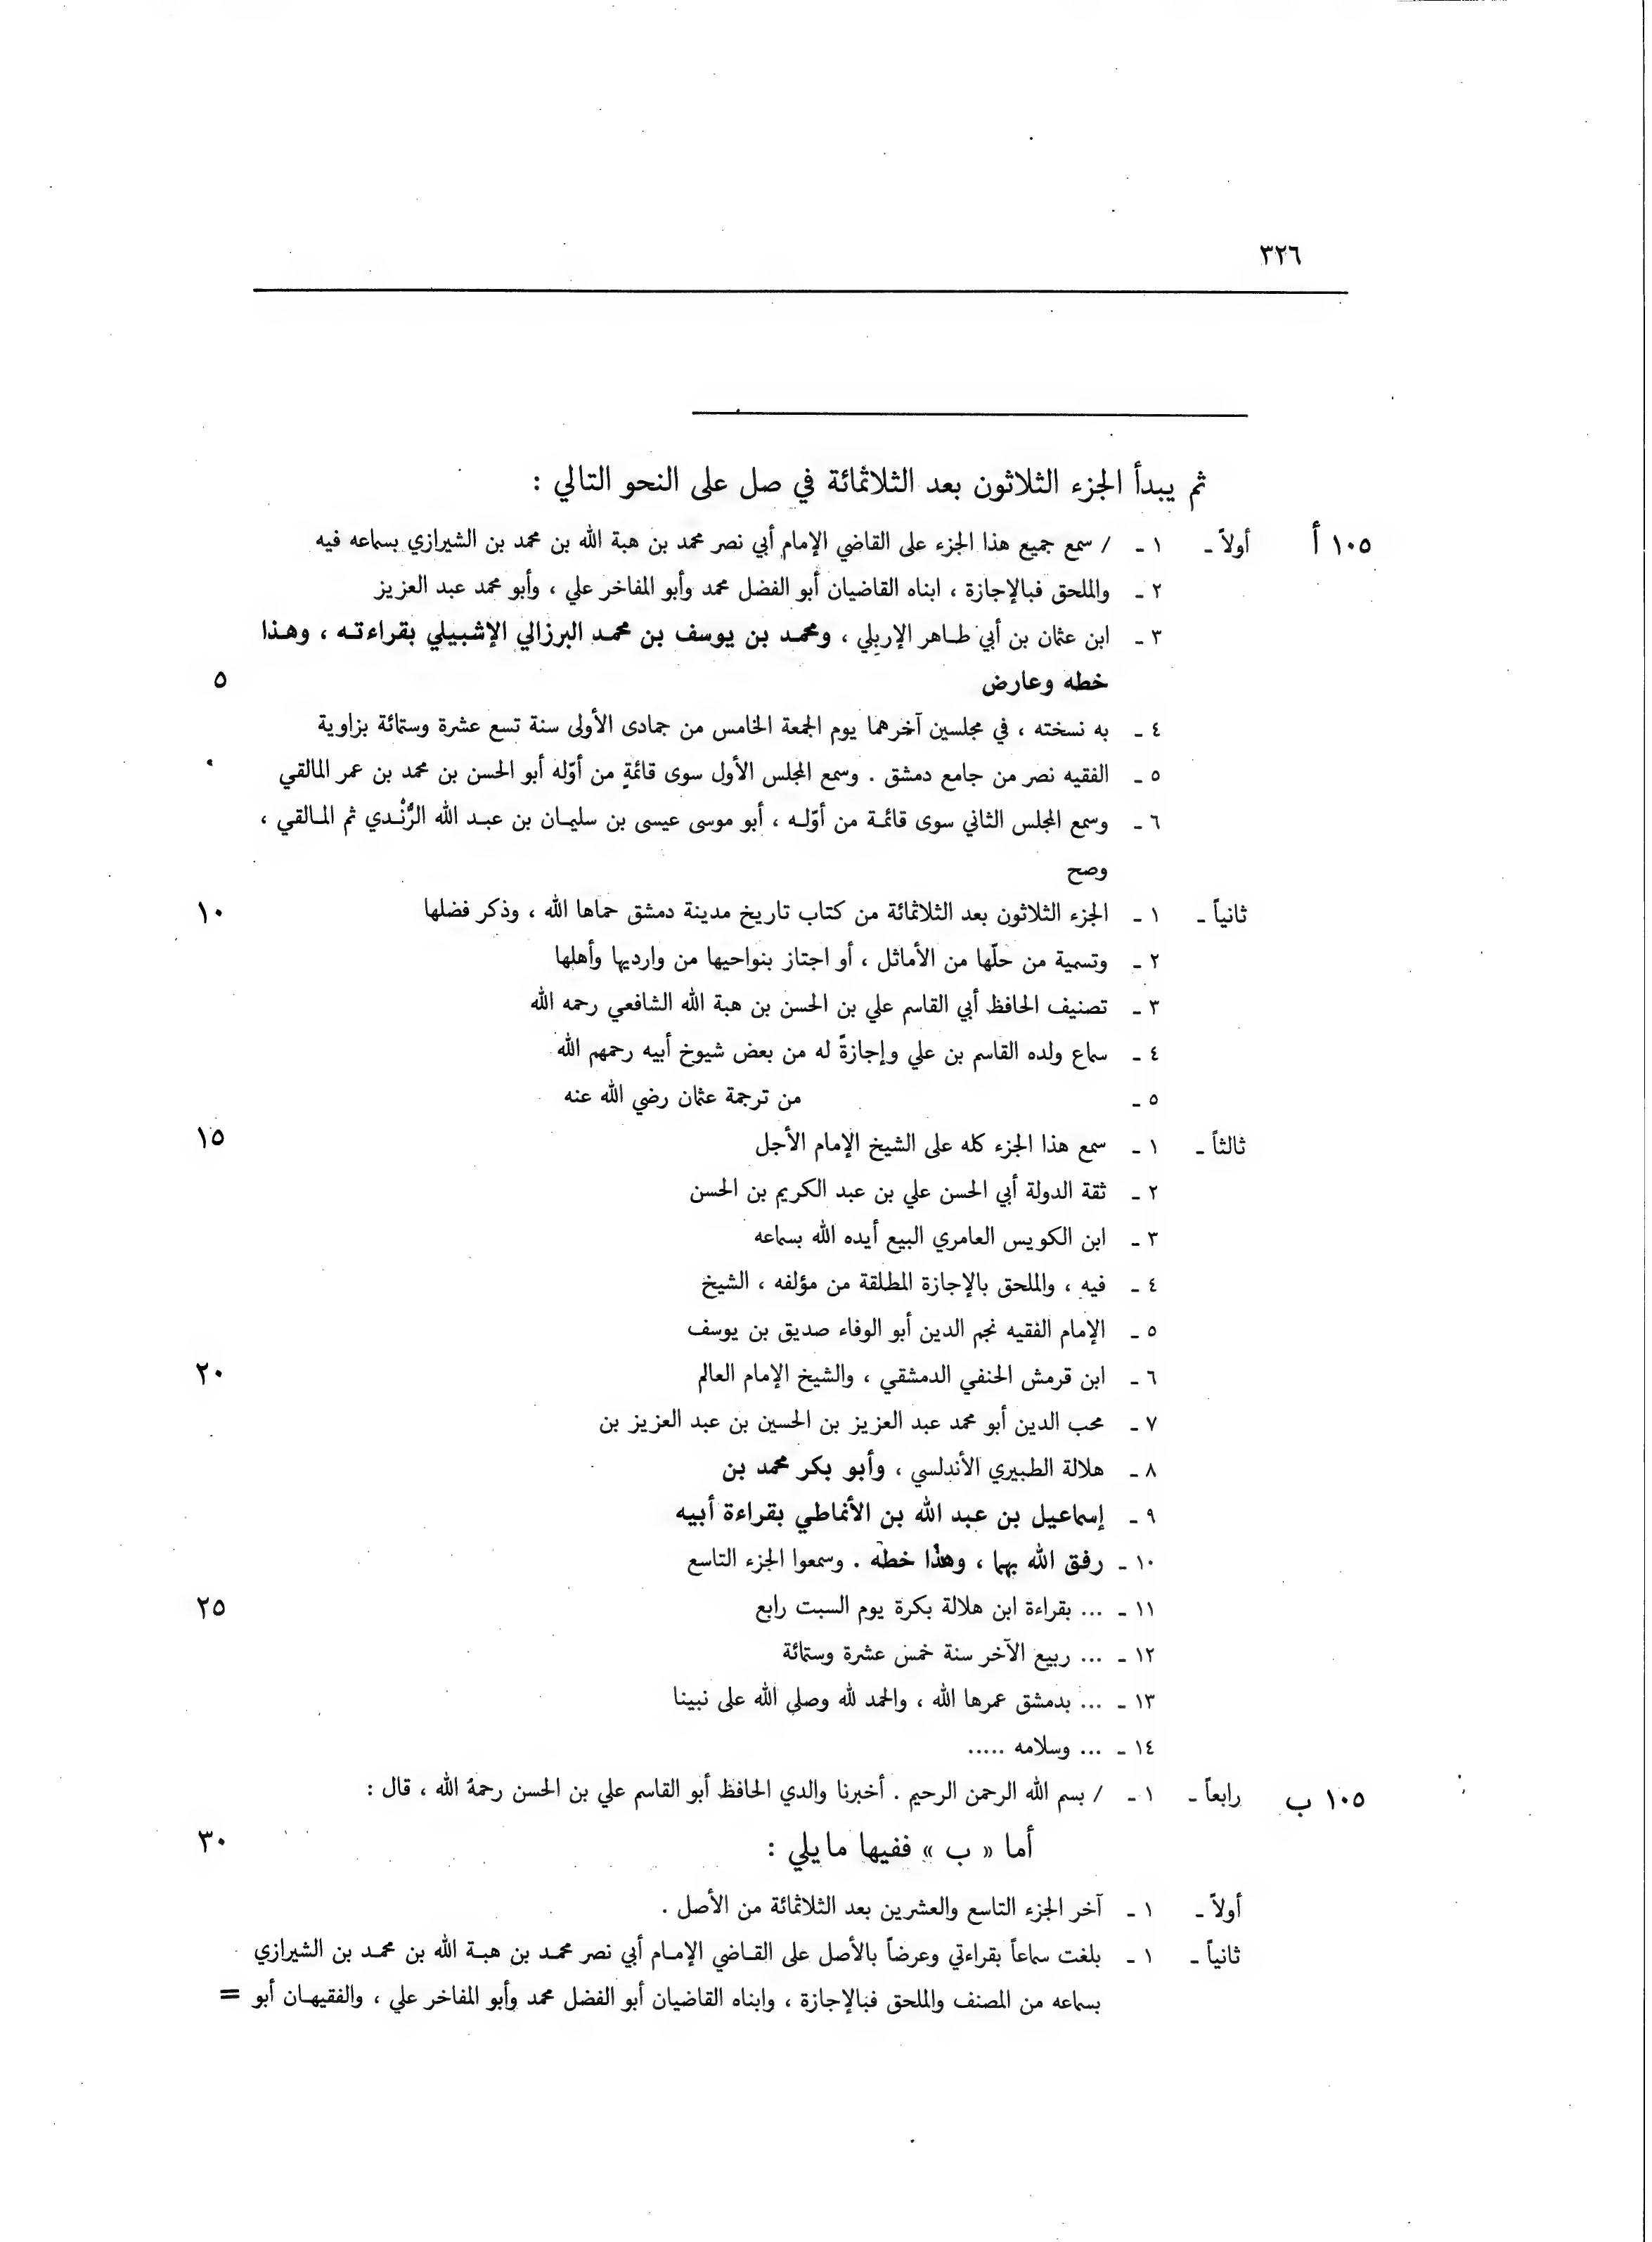 ٣٢٦
ثم يبدأ الجزء الثلاثون بعد الثلاثمائة في صل على النحو التالي :
١٠٥ أ أولاً ـ ١ ـ / سمع جميع هذا الجزء على القاضي الإمام أبي نصر محمد بن هبة الله بن محمد بن الشيرازي بسماعه فيه
٢ ـ والملحق فبالإجازة ، ابناه القاضيان أبو الفضل محمد وأبو المفاخر علي ، وأبو محمد عبد العزيز
٣ ـ ابن عثمان بن أبي طاهر الإربلي ، ومحمد بن يوسف بن محمد البرزالي الإشبيلي بقراءته ، وهذا
خطه وعارض ٥
٤ ـ به نسخته ، في مجلسين آخرهما يوم الجمعة الخامس من جمادى الأولى سنة تسع عشرة وستمائة بزاوية
٥ ـ الفقيه نصر من جامع دمشق . وسمع المجلس الأول سوى قائمةٍ من أوّله أبو الحسن بن محمد بن عمر المالقي
٦ ـ وسمع المجلس الثاني سوى قائمة من أوّله ، أبو موسى عيسى بن سليمان بن عبد الله الرُّنْدي ثم المالقي ،
وصح
ثانياً ـ ١ ـ الجزء الثلاثون بعد الثلاثمائة من كتاب تاريخ مدينة دمشق حماها الله ، وذكر فضلها ١٠
٢ ـ وتسمية من حلّها من الأماثل ، أو اجتاز بنواحيها من وارديها وأهلها
٣ ـ تصنيف الحافظ أبي القاسم علي بن الحسن بن هبة الله الشافعي رحمه الله
٤ ـ سماع ولده القاسم بن علي وإجازةً له من بعض شيوخ أبيه رحمهم الله
٥ ـ من ترجمة عثمان رضي الله عنه
ثالثاً ـ ١ ـ سمع هذا الجزء كله على الشيخ الإمام الأجل ١٥
٢ ـ ثقة الدولة أبي الحسن علي بن عبد الكريم بن الحسن
٣ ـ ابن الكويس العامري البيع أيده الله بسماعه
٤ ـ فيه ، والملحق بالإجازة المطلقة من مؤلفه ، الشيخ
٥ ـ الإمام الفقيه نجم الدين أبو الوفاء صديق بن يوسف
٦ ـ ابن قرمش الحنفي الدمشقي ، والشيخ الإمام العالم ٢٠
٧ ـ محب الدين أبو محمد عبد العزيز بن الحسين بن عبد العزيز بن
٨ ـ هلالة الطبيري الأندلسي ، وأبو بكر محمد بن
٩ ـ إسماعيل بن عبد الله بن الأنماطي بقراءة أبيه
١٠ ـ رفق الله بهما ، وهذا خطه . وسمعوا الجزء التاسع
١١ ـ ... بقراءة ابن هلالة بكرة يوم السبت رابع ٢٥
١٢ ـ ... ربيع الآخر سنة خمس عشرة وستمائة
١٣ ـ ... بدمشق عمرها الله ، والحمد لله وصلى الله على نبينا
١٤ ـ ... وسلامه .....
١٠٥ ب رابعاً ـ ١ ـ / بسم الله الرحمن الرحيم . أخبرنا والدي الحافظ أبو القاسم علي بن الحسن رحمهُ الله ، قال :
أما « ب » ففيها مايلي : ٣٠
أولاً ـ ١ ـ آخر الجزء التاسع والعشرين بعد الثلاثمائة من الأصل .
ثانياً ـ ١ ـ بلغت سماعاً بقراءتي وعرضاً بالأصل على القاضي الإمام أبي نصر محمد بن هبة الله بن محمد بن الشيرازي
بسماعه من المصنف والملحق فبالإجازة ، وابناه القاضيان أبو الفضل محمد وأبو المفاخر علي ، والفقيهان أبو =